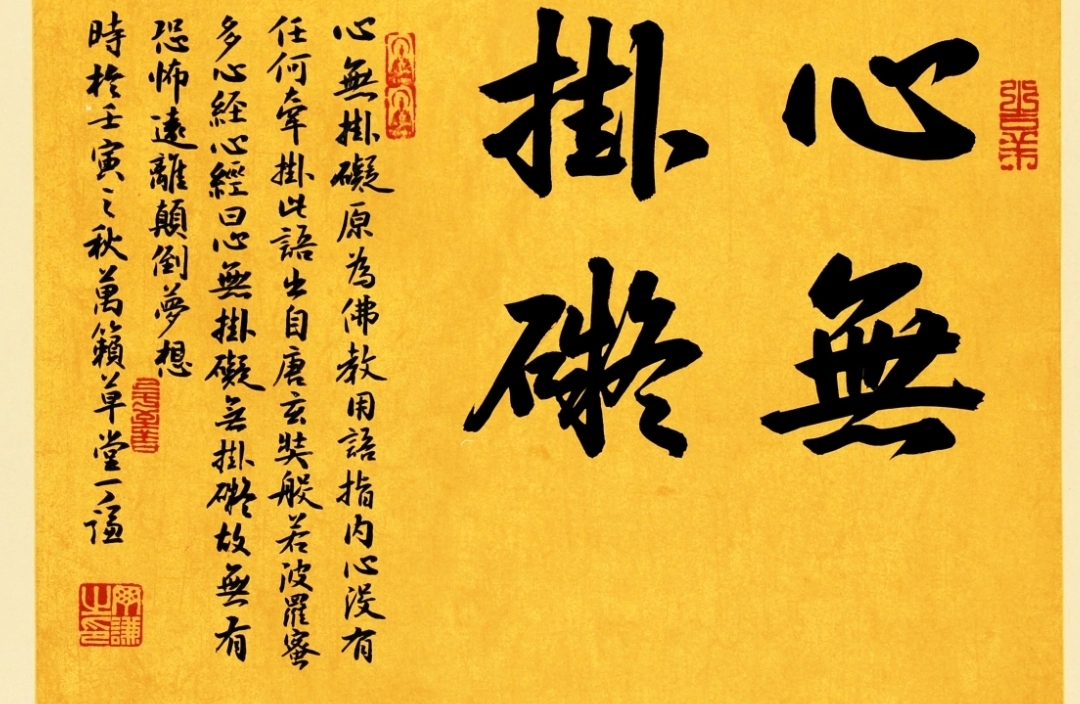 心無
掛礙
心無掛礙原為佛教用語指内心没有
任何牽掛此語出自唐玄奘般若波羅蜜
多心経心經曰心無掛礙無掛礙故無有
恐怖遠離顛倒夢想
時於壬寅之秋萬籟草堂一謙